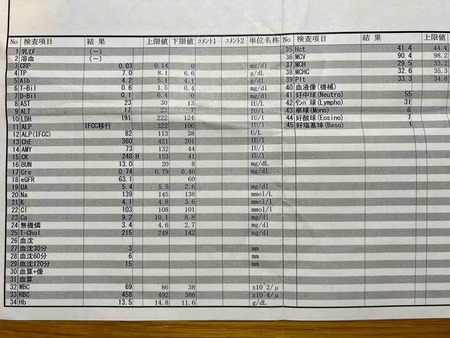 No 検査項目 結果 上限値 下限値 コメント1 コメント2 単位名称
1 乳び (−)
2 溶血 (−)
3 CRP 0.03 0.14 0 mg/dl
4 TP 7.0 8.1 6.6 g/dL
5 Alb 4.2 5.1 4.1 g/dL
6 T-Bil 0.6 1.5 0.4 mg/dl
7 D-Bil 0.1 0.4 0 mg/dl
8 AST 23 30 13 IU/l
9 ALT 17 23 7 IU/l
10 LDH 191 222 124 IU/l
11 ALP IFCC移行 322 106 IU/l
12 ALP(IFCC) 82 113 38 U/L
13 ChE 360 421 201 IU/l
14 AMY 73 132 44 IU/l
15 CK 248 H 153 41 IU/l
16 BUN 13.0 20 8 mg/dL
17 Cre 0.74 0.79 0.46 mg/dl
18 eGFR 63.1 60
19 UA 5.4 5.5 2.6 mg/dl
20 Na 139 145 138 mmol/L
21 K 4.1 4.8 3.6 mmol/l
22 Cl 103 108 101 mmol/l
23 Ca 9.2 10.1 8.8 mg/dl
24 無機燐 3.4 4.6 2.7 mg/dl
25 T-Chol 215 248 142 mg/dl
26 血沈
27 血沈30分 3 mm
28 血沈60分 6 mm
29 血沈120分 15 mm
30 血算+像
31 血算
32 WBC 69 86 38 x10^2/μ
33 RBC 458 492 386 x10^4/μ
34 Hb 13.5 14.8 11.6 g/dL
No 検査項目 結果 上限値
35 Hct 41.4 44.4
36 MCV 90.4 98.2
37 MCH 29.5 33.2
38 MCHC 32.6 35.3
39 Plt 33.3 34.8
40 血液像(機械)
41 好中球(Neutro) 55
42 リンパ球(Lympho) 31
43 単球(Mono) 6
44 好酸球(Eosino) 7
45 好塩基球(Baso) 1